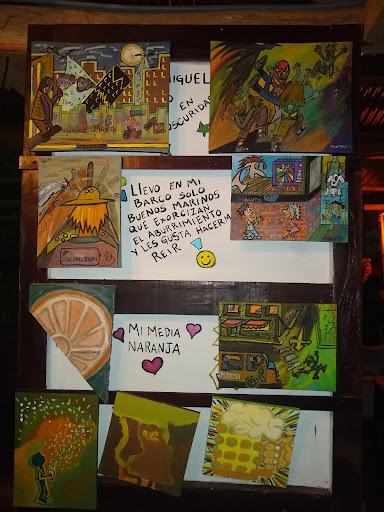 IGUEL
O EN
OSCURIDAD
LLEVO EN MI
BARCO SOLO
BUENOS MARINOS
QUE EXORCIZAN
EL ABURRIMIENTO
Y LES GUSTA HACERM
REIR
MI MEDIA
NARANJA